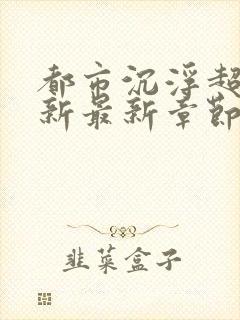 都市沉浮超
新最新章節
韭菜盒子